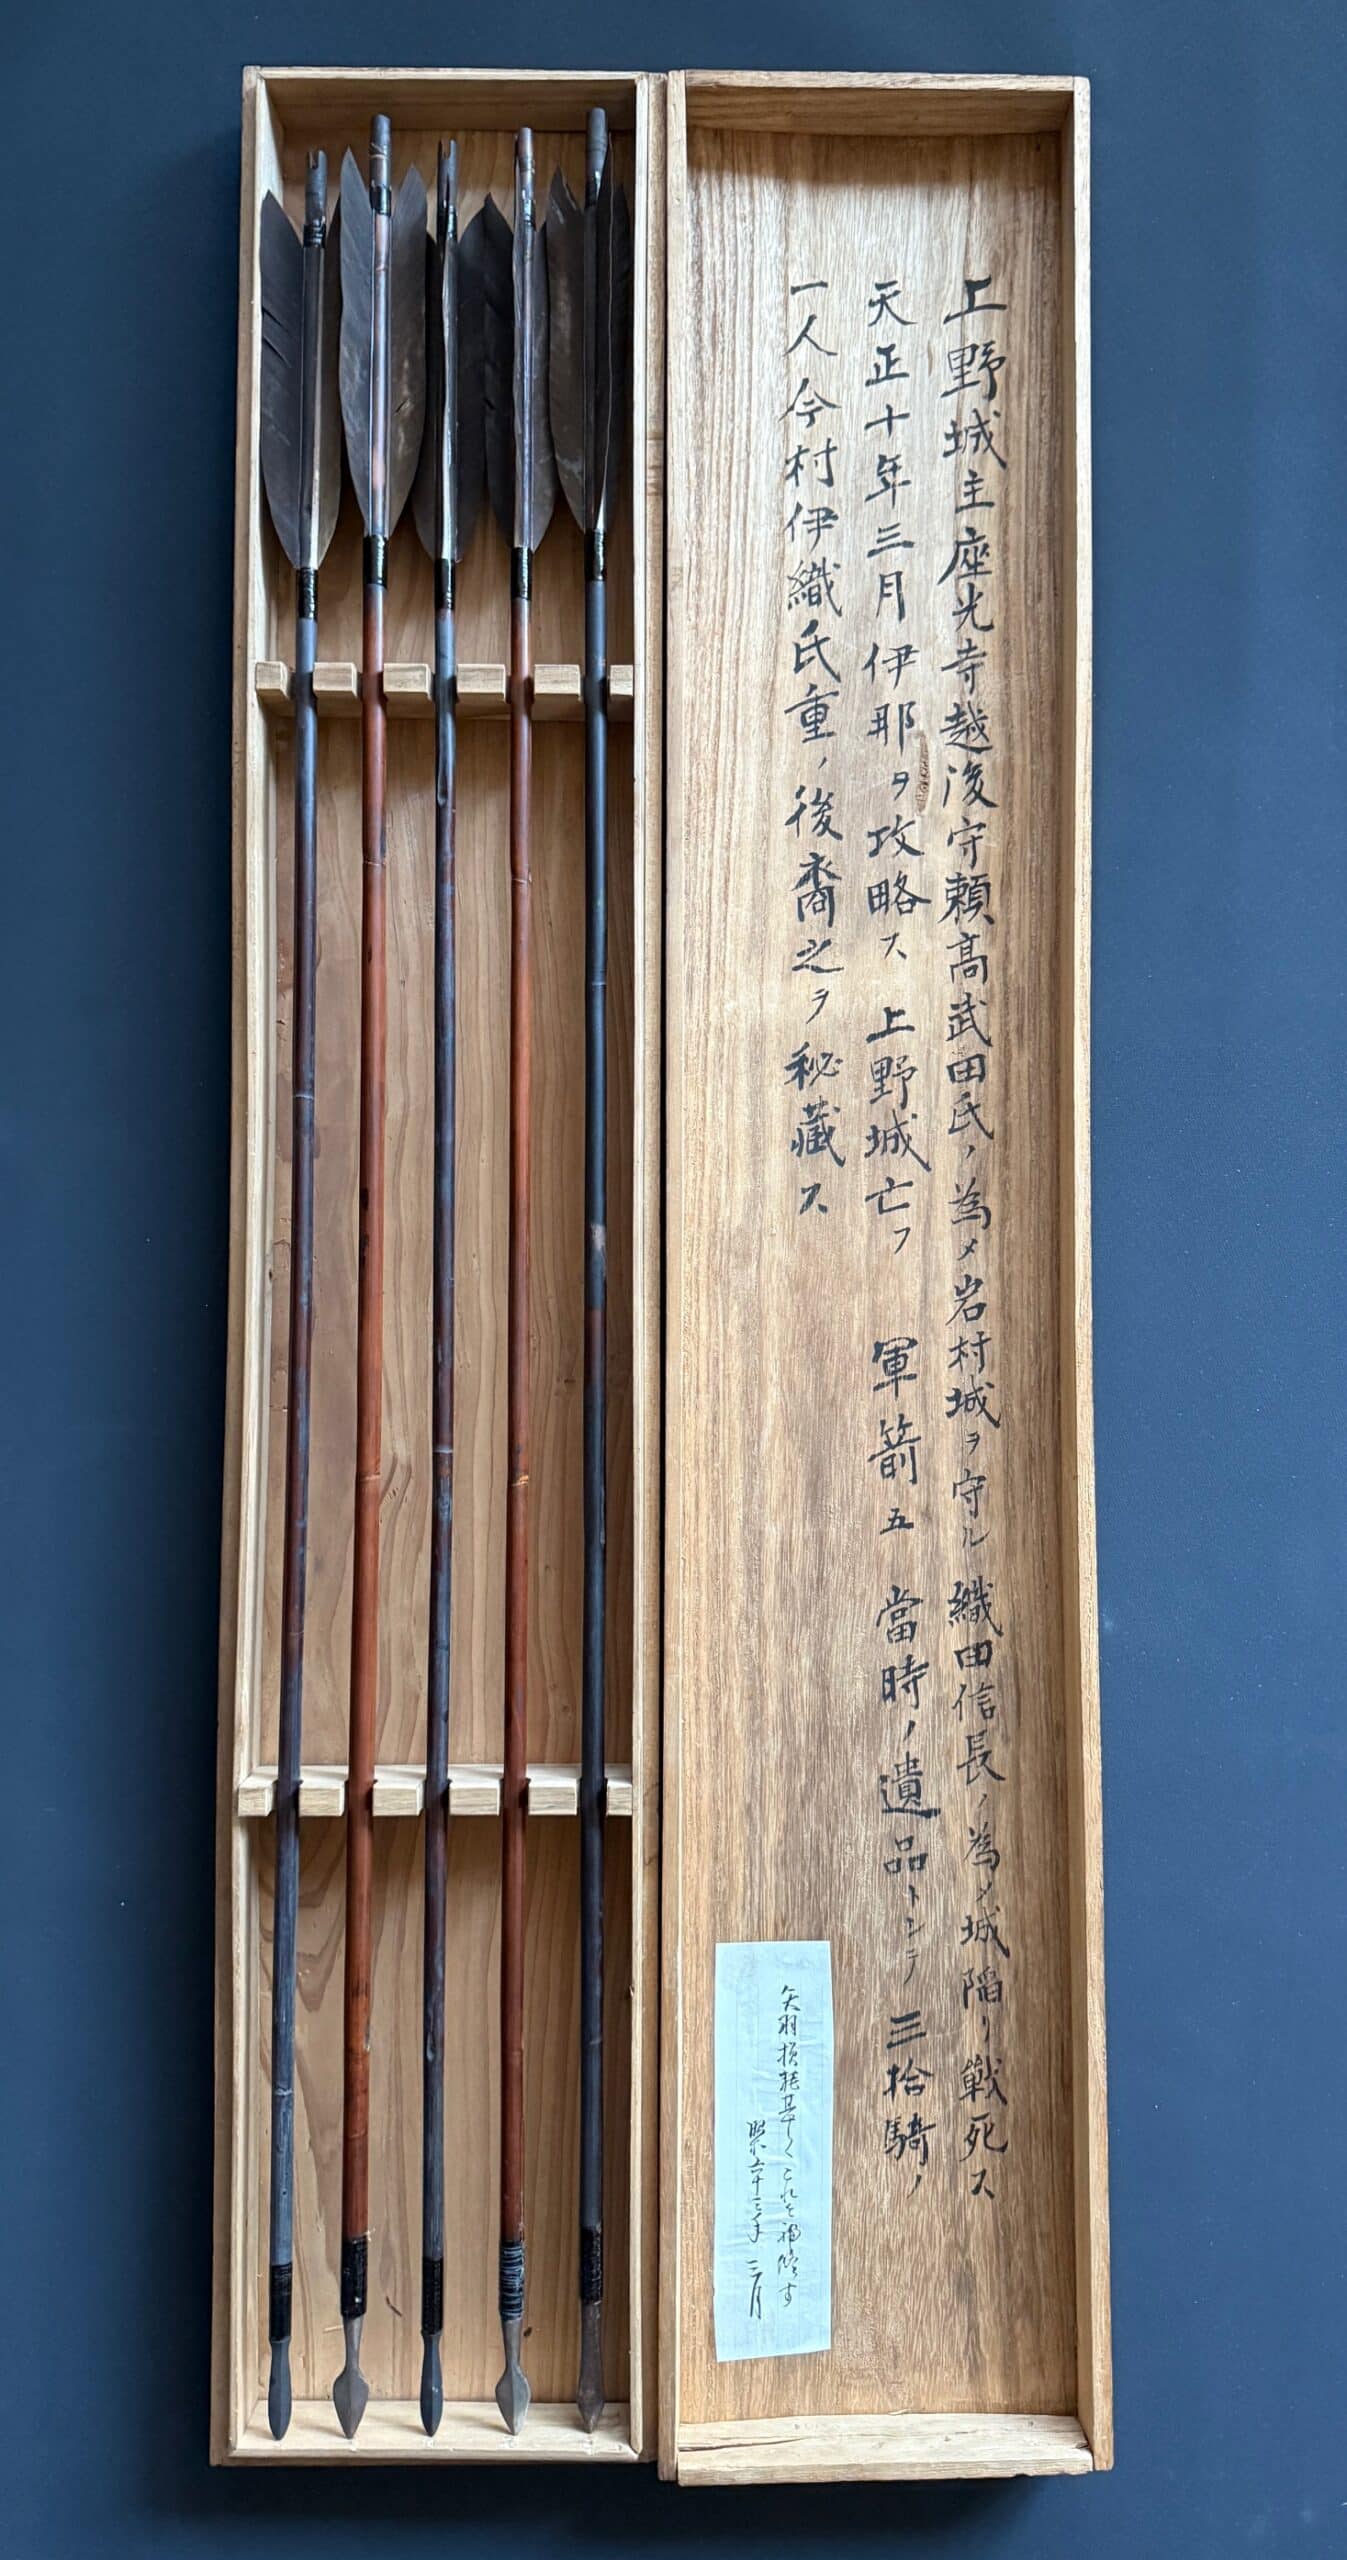 上野城主座光寺越後守頼高武田氏ノ為メ岩村城ヲ守ル 織田信長ノ為メ城陥リ戦死ス
天正十年三月伊那ヲ攻略ス 上野城亡フ 軍箭五 當時ノ遺品トシテ 三拾騎ノ
一人今村伊織氏重ノ後裔之ヲ秘藏ス
矢羽損耗甚しくこれを補修す
昭和 三年 三月